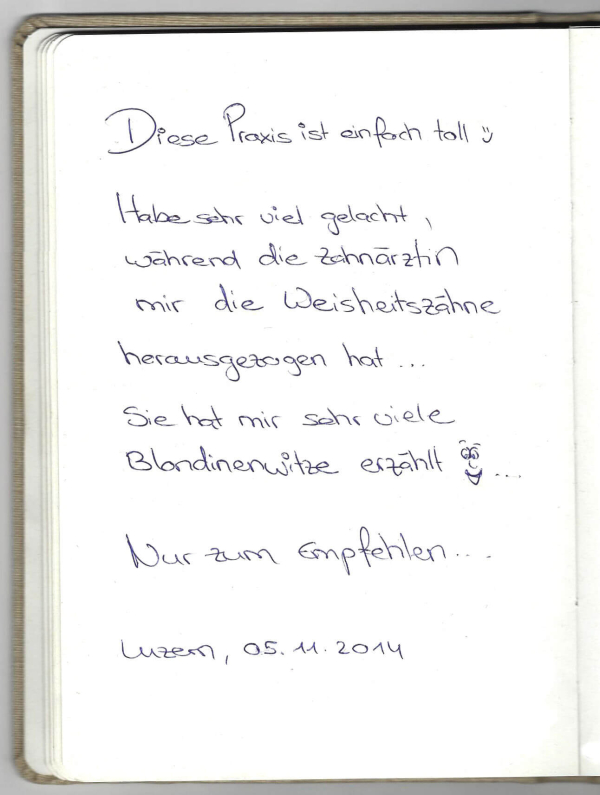 Diese Praxis ist einfach toll :)
Habe sehr viel gelacht,
während die Zahnärztin
mir die Weisheitszähne
herausgezogen hat ...
Sie hat mir sehr viele
Blondinenwitze erzählt ...
Nur zum Empfehlen....
Luzern, 05.11.2014